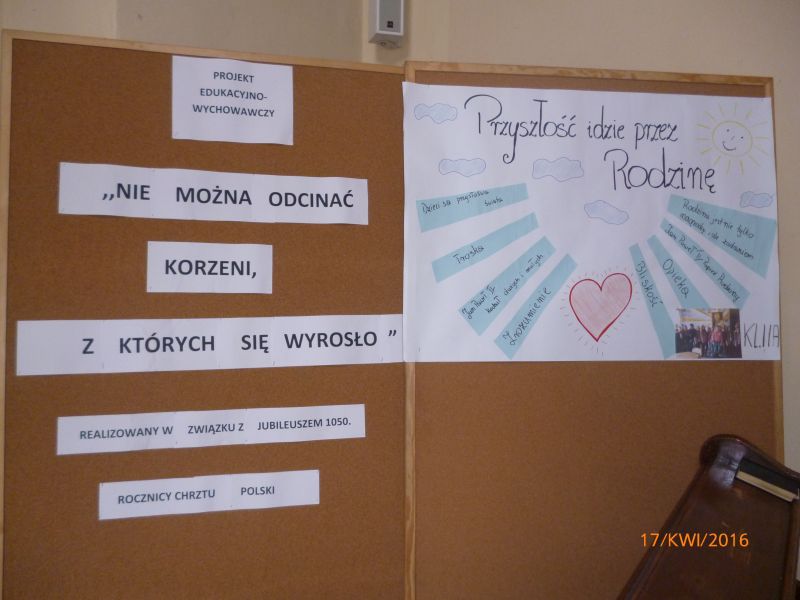 PROJEKT
EDUKACYJNO-
WYCHOWAWCZY
,,NIE MOŻNA ODCINAĆ
KORZENI,
Z KTÓRYCH SIĘ WYROSŁO ”
REALIZOWANY W ZWIĄZKU Z JUBILEUSZEM 1050.
ROCZNICY CHRZTU POLSKI
Przyszłość idzie przez
Rodzinę
Dzieci są przyszłością
świata
Troska
Jan Paweł II
kochał dużych i małych
Zrozumienie
Bliskość
Opieka
Jan Paweł II Papież Rodziny
Rodzina jest nie tylko
ale zadaniem
KL.IIA
17/KWI/2016